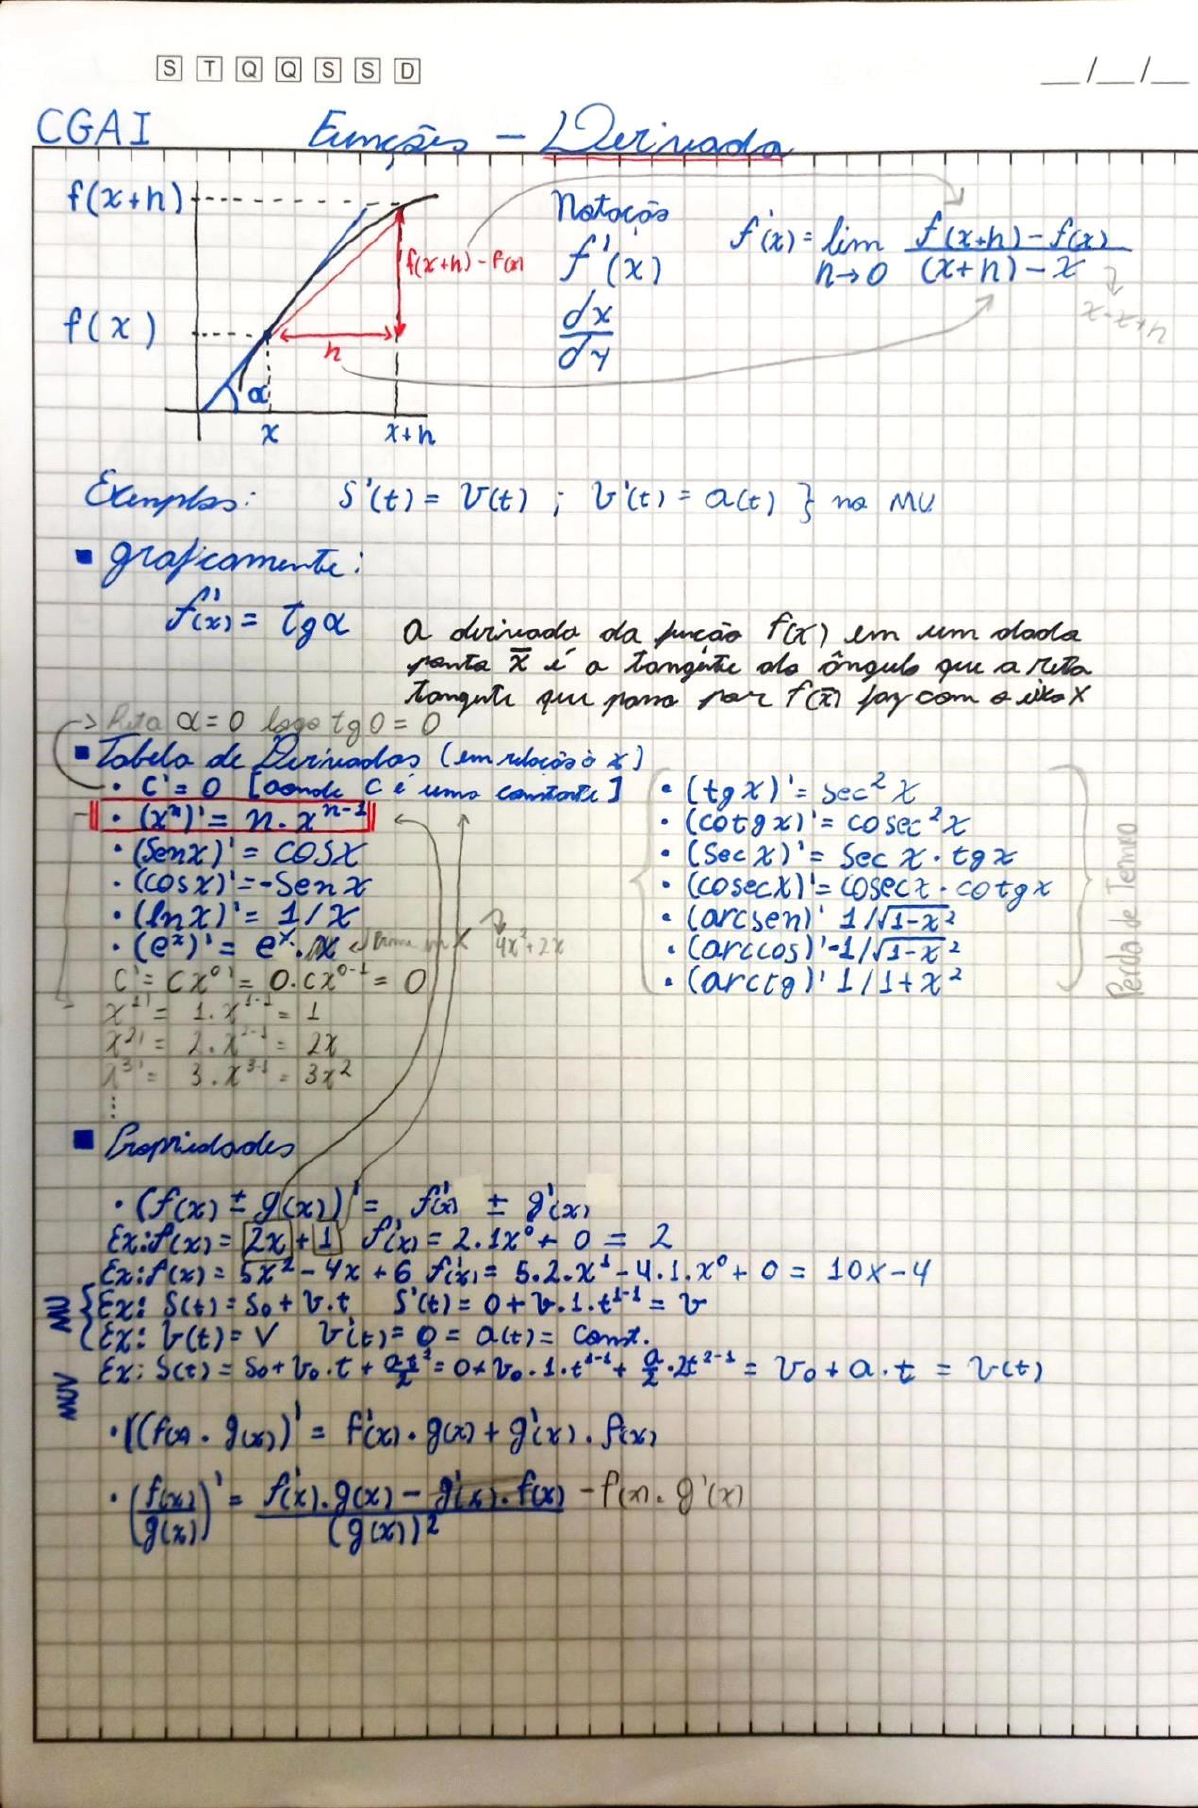 S T Q Q S S D __/__/__
CGAI Funções - Derivada
f(x+h)
f(x+h) - f(x)
f(x)
h
α
x x+h
Notação
f'(x)
dx
dy
f'(x) = lim f(x+h) - f(x)
h→0 (x+h) - x
x-x+h
Exemplos: S'(t) = v(t) ; v'(t) = a(t) } no MU
▪ graficamente:
f'(x) = tg α
a derivada da função f(x) em um dado
ponto x̄ é a tangente do ângulo que a reta
tangente que passa por f(x̄) faz com o eixo x
-> Reta α = 0 logo tg 0 = 0
▪ Tabela de Derivadas (em relação à x)
• C' = 0 [aonde C é uma constante]
• (xⁿ)' = n . xⁿ⁻¹
• (sen x)' = cos x
• (cos x)' = - sen x
• (ln x)' = 1/x
• (eˣ)' = eˣ .
4x² + 2x
C' = Cx⁰' = 0.Cx⁰⁻¹ = 0
x¹' = 1.x¹⁻¹ = 1
x²' = 2.x²⁻¹ = 2x
x³' = 3.x³⁻¹ = 3x²
⋮
• (tg x)' = sec² x
• (cotg x)' = cosec² x
• (sec x)' = sec x . tg x
• (cosec x)' = cosec x . cotg x
• (arcsen)' 1/√1-x²
• (arccos)' -1/√1-x²
• (arctg)' 1/1+x²
Perda de Tempo
▪ Propriedades
• (f(x) ± g(x))' = f'(x) ± g'(x)
Ex: f(x) = 2x + 1 f'(x) = 2.1x⁰ + 0 = 2
Ex: f(x) = 5x² - 4x + 6 f'(x) = 5.2.x¹ - 4.1.x⁰ + 0 = 10x - 4
MU { Ex: S(t) = S₀ + v.t S'(t) = 0 + v.1.t¹⁻¹ = v
Ex: v(t) = V v'(t) = 0 = a(t) = const.
MUV Ex: S(t) = S₀ + v₀.t + at²/2 = 0 + v₀.1.t¹⁻¹ + a/2 . 2t²⁻¹ = v₀ + a.t = v(t)
• ((f(x) . g(x))' = f'(x) . g(x) + g'(x) . f(x)
• (f(x)/g(x))' = f'(x).g(x) - g'(x).f(x) - f(x) . g'(x)
(g(x))²